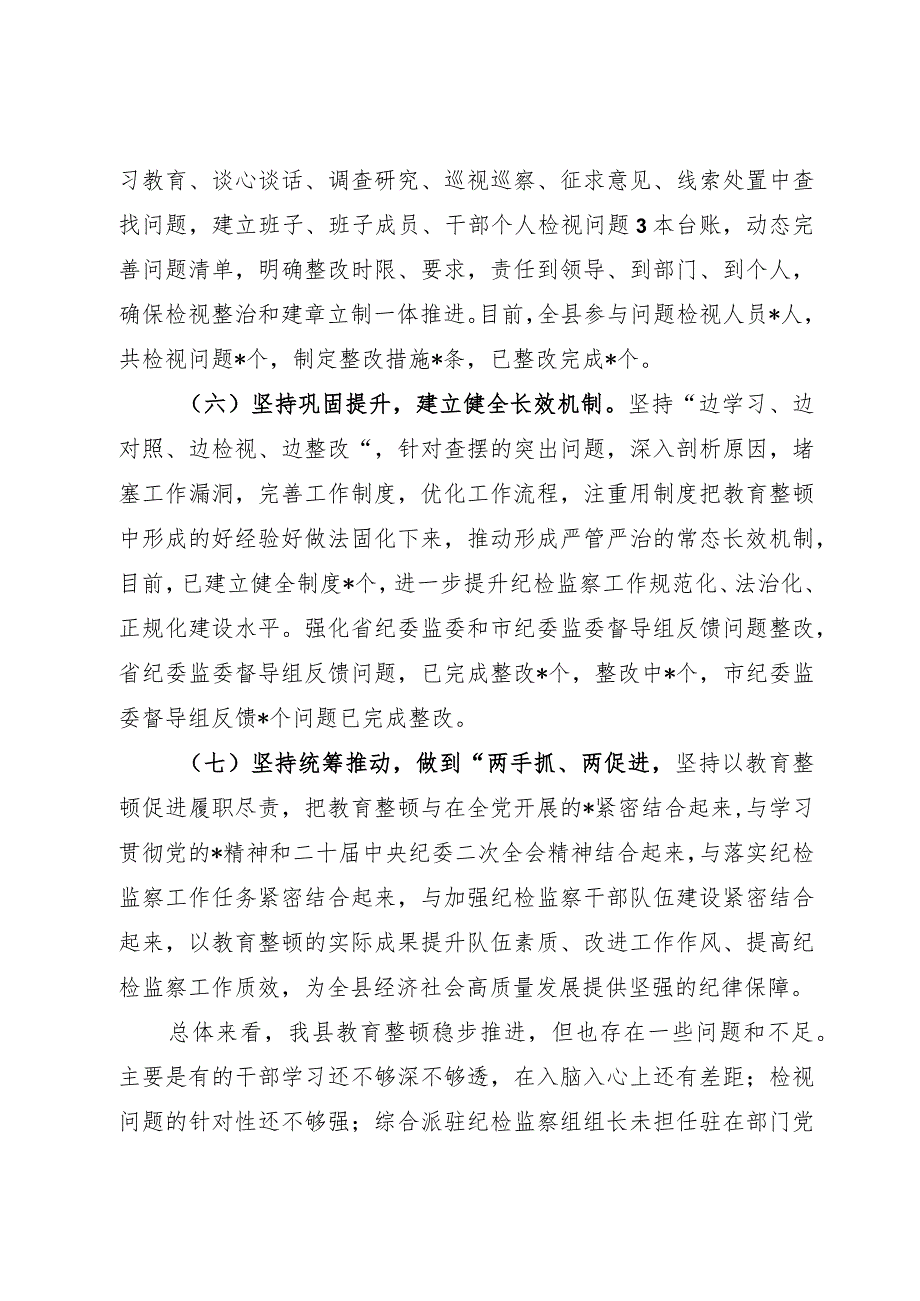 习教育、谈心谈话、调查研究、巡视巡察、征求意见、线索处置中查
找问题，建立班子、班子成员、干部个人检视问题 3 本台账，动态完
善问题清单，明确整改时限、要求，责任到领导、到部门、到个人，
确保检视整治和建章立制一体推进。目前，全县参与问题检视人员*人，
共检视问题*个，制定整改措施*条，已整改完成*个。
（六）坚持巩固提升，建立健全长效机制。坚持“边学习、边
对照、边检视、边整改“，针对查摆的突出问题，深入剖析原因，堵
塞工作漏洞，完善工作制度，优化工作流程，注重用制度把教育整顿
中形成的好经验好做法固化下来，推动形成严管严治的常态长效机制，
目前，已建立健全制度*个，进一步提升纪检监察工作规范化、法治化、
正规化建设水平。强化省纪委监委和市纪委监委督导组反馈问题整改，
省纪委监委督导组反馈问题，已完成整改*个，整改中*个，市纪委监
委督导组反馈*个问题已完成整改。
（七）坚持统筹推动，做到“两手抓、两促进，坚持以教育整
顿促进履职尽责，把教育整顿与在全党开展的*紧密结合起来,与学习
贯彻党的*精神和二十届中央纪委二次全会精神结合起来，与落实纪检
监察工作任务紧密结合起来，与加强纪检监察干部队伍建设紧密结合
起来，以教育整顿的实际成果提升队伍素质、改进工作作风、提高纪
检监察工作质效，为全县经济社会高质量发展提供坚强的纪律保障。
总体来看，我县教育整顿稳步推进，但也存在一些问题和不足。
主要是有的干部学习还不够深不够透，在入脑入心上还有差距；检视
问题的针对性还不够强；综合派驻纪检监察组组长未担任驻在部门党